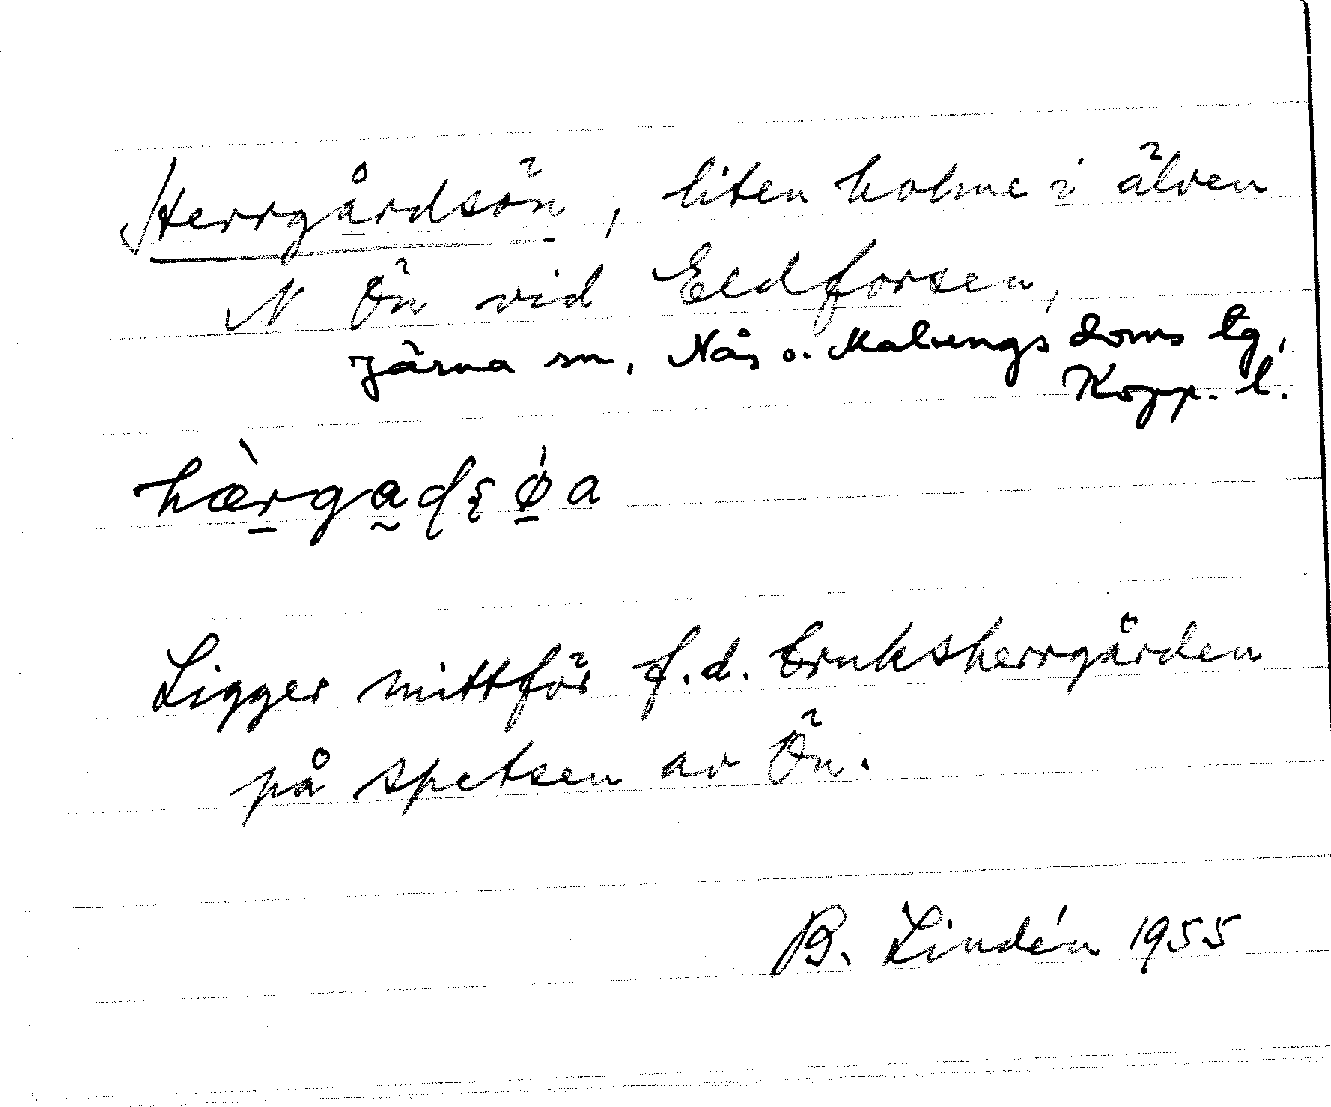 Herrgårdsön, liten holme i älven
N Ön vid Eldforsen,
Järna sn, Nås o. Malungs doms tg,
Kopp. l.
Ligger mittför f.d. bruksherrgården
på spetsen av Ön.
B. Lindén 1955